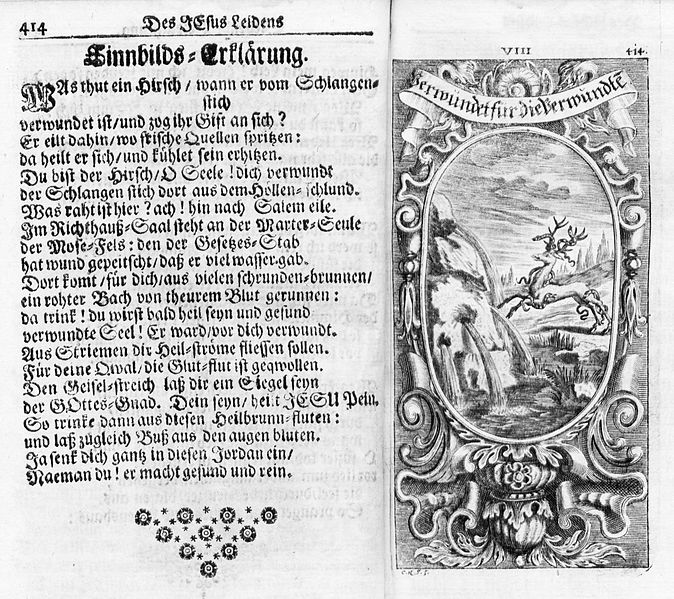 414
Des JEsus Leidens
Sinnbilds-Erklärung.
WAs thut ein Hirsch/ wann er vom Schlangen-
stich
verwundet ist/und zog ihr Gift an sich?
Er eilt dahin/wo frische Quellen spritzen:
da heilt er sich/und kühlet sein erhitzen.
Du bist der Hirsch/O Seele! dich verwundt
der Schlangen stich dort aus dem Höllen-schlund.
Was raht ist hier? ach! hin nach Salem eile.
Im Richthauß-Saal steht an der Marter-Seule
der Mose-Fels: den der Gesetzes-Stab
hat wund gepeitscht/daß er viel wasser gab.
Dort komt/für dich/aus vielen schrunden-brunnen/
ein rohter Bach von theurem Blut gerunnen:
da trink! du wirst bald heil seyn und gesund
verwundte Seel! Er ward/vor dich verwundt.
Aus Striemen dir Heil-ströme fliessen sollen.
Für deine Qwal/die Glut-flut ist geqwollen.
Den Geisel-streich laß dir ein Siegel seyn
der GOttes-Gnad. Dein seyn/heist JESU Pein.
So trinke dann aus diesen Heilbrunn-fluten:
und laß zugleich Buß aus den augen bluten.
Ja senk dich gantz in diesen Jordan ein/
Naeman du! er macht gesund und rein.
VIII
414.
Verwundet für die Verwundte